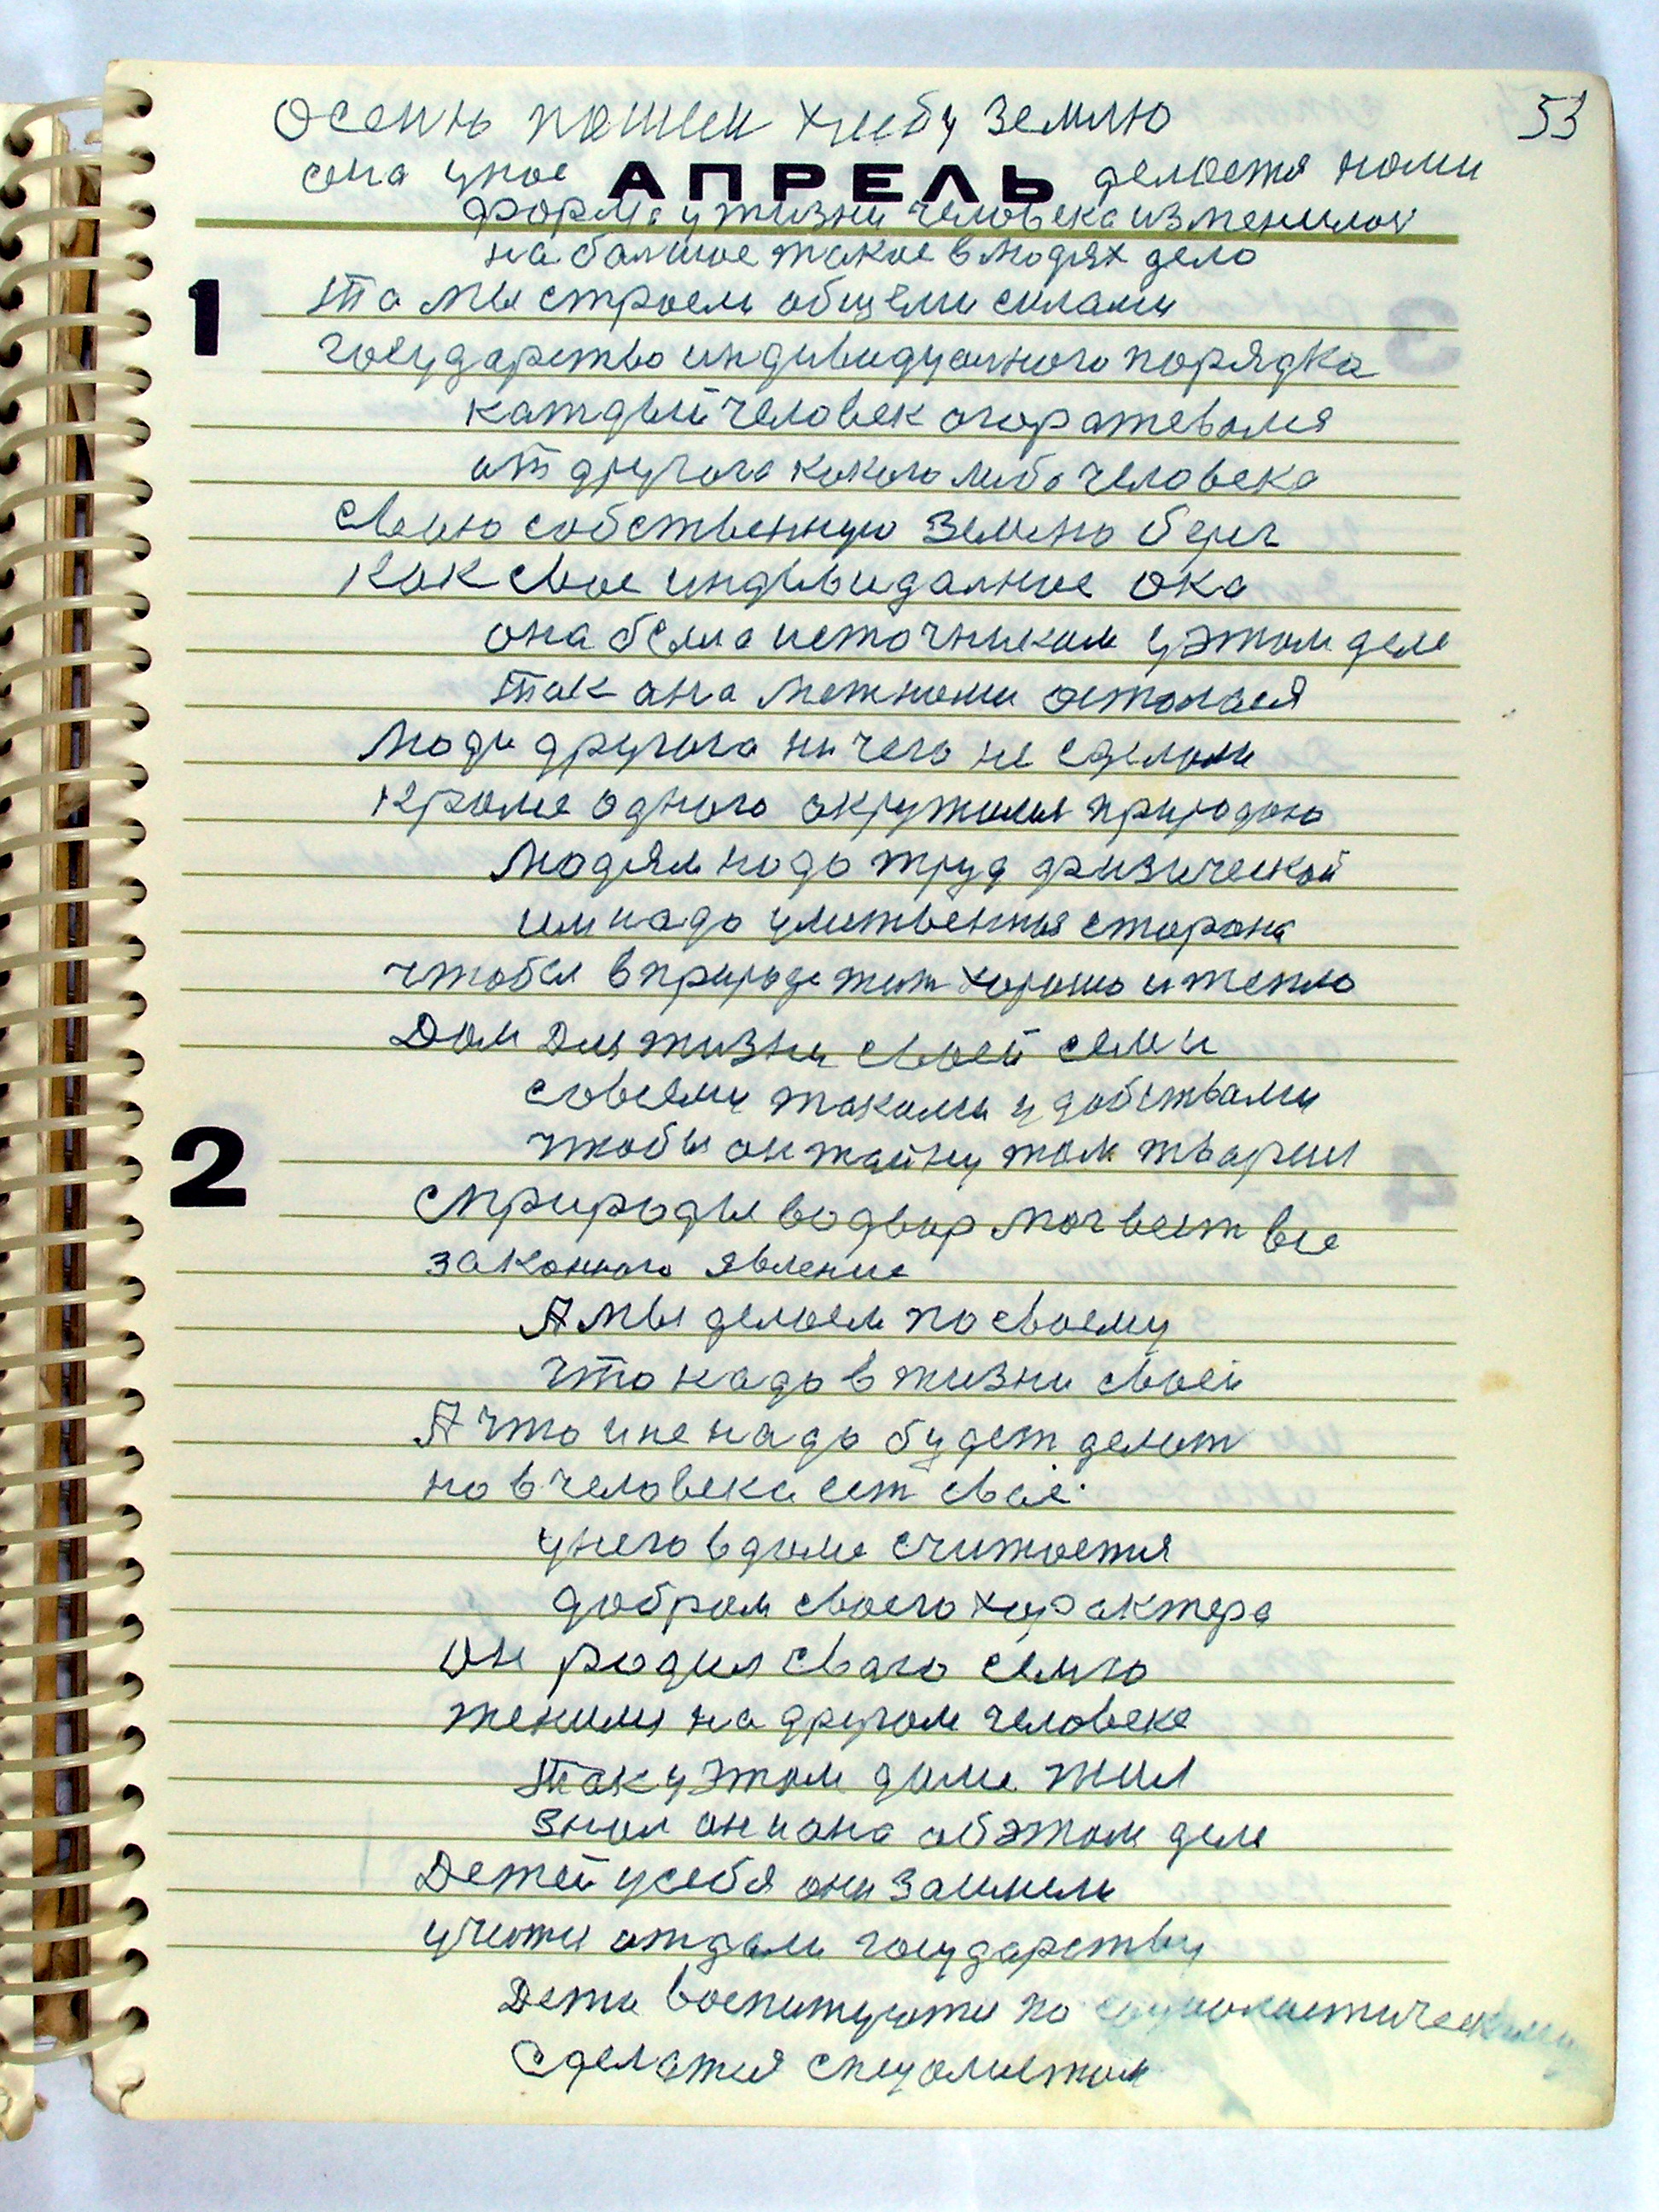 53
осенью пашем хлебу землю
она уное АПРЕЛЬ делается нами
форма у жизни человека изменилась
на балшое такое в людях дело
1
то мы строем общеми силами
государство индивидуалного порядка
каждый человек огоражевался
от другога какого либо человека
свою собственную землю берег
как свое индивидалное ока
она была источником у этом деле
так она межнами осталася
люди другога ничего не сделали
кроме одного окружился природою
людям надо труд физический
им надо умственая сторона
чтобы в природе жит хорошо и тепло
Дом для жизни своей семи
совсеми такими удобствами
2
чтобы он тайну там тварил
с природы водвор мог вест все
законного явление
А мы делаем по своему
что надо в жизни своей
А что и не надо будет делат
но в человека ест своё
унего в доме считается
добром своего характера
Он родил сваго семю
женился на другом человеке
так у этом доме жил
знал он и она об этом деле
Детей у себя они заимели
учится отдали государству
Дети воспитуются по социолистическому
сделатся специолистом